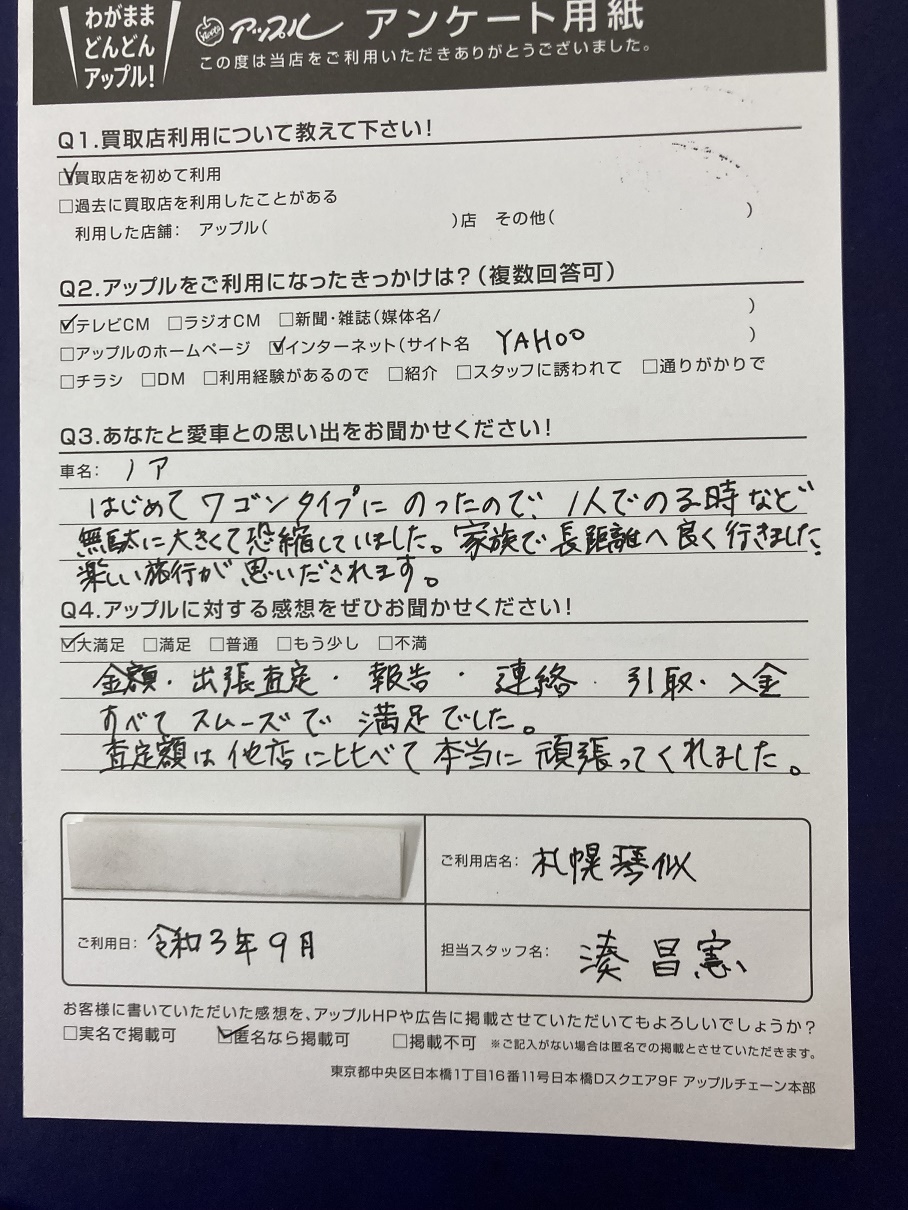 わがまま
どんどん
アップル!
アップル アンケート用紙
この度は当店をご利用いただきありがとうございました。
Q1.買取店利用について教えて下さい!
☑買取店を初めて利用
□過去に買取店を利用したことがある
利用した店舗: アップル( )店 その他( )
Q2.アップルをご利用になったきっかけは?(複数回答可)
☑テレビCM □ラジオCM □新聞・雑誌(媒体名/ )
□アップルのホームページ ☑インターネット(サイト名 YAHOO )
□チラシ □DM □利用経験があるので □紹介 □スタッフに誘われて □通りがかりで
Q3.あなたと愛車との思い出をお聞かせください!
車名: ノア
はじめてワゴンタイプにのったので、1人でのる時など
無駄に大きくて恐縮していました。家族で長距離へ良く行きました
楽しい旅行が思いだされます。
Q4.アップルに対する感想をぜひお聞かせください!
☑大満足 □満足 □普通 □もう少し □不満
金額・出張査定・報告・連絡・引取・入金
すべてスムーズで満足でした。
査定額は他店に比べて本当に頑張ってくれました。
ご利用店名: 札幌琴似
ご利用日: 令和3年9月
担当スタッフ名: 湊 昌憲
お客様に書いていただいた感想を、アップルHPや広告に掲載させていただいてもよろしいでしょうか?
□実名で掲載可 ☑匿名なら掲載可 □掲載不可 ※ご記入がない場合は匿名での掲載とさせていただきます。
東京都中央区日本橋1丁目16番11号日本橋Dスクエア9F アップルチェーン本部